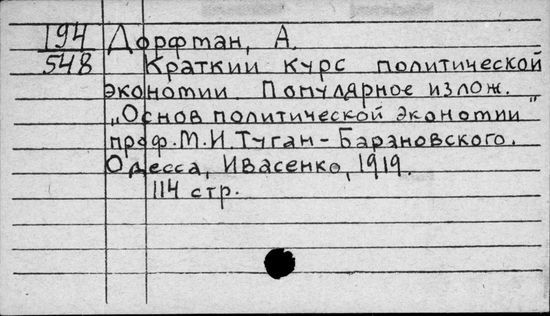 194 Дорфман, А.
548 Краткий курс политической
экономии. Популярное излож.
„Основ политической экономии"
проф. М.И. Туган-Барановского.
Одесса, Ивасенко, 1919.
114 стр.